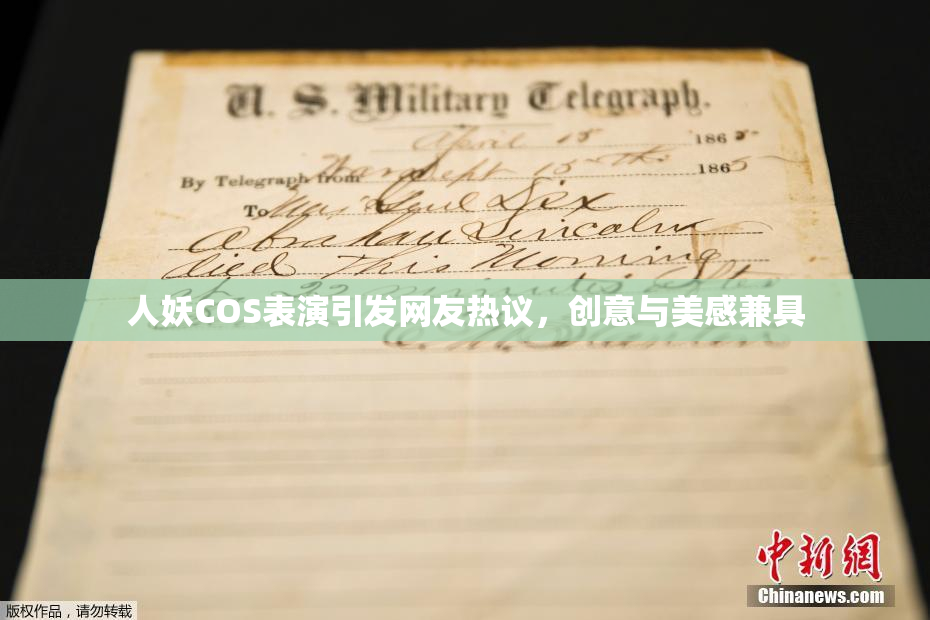 U. S. Military Telegraph.
April 15 1865
By Telegraph from War Dept 15th 1865
To Maj Genl Dix
Abraham Lincoln
died This Morning
at 22 minutes after
人妖COS表演引发网友热议，创意与美感兼具
E. M. Stanton
中新网
Chinanews.com
版权作品，请勿转载